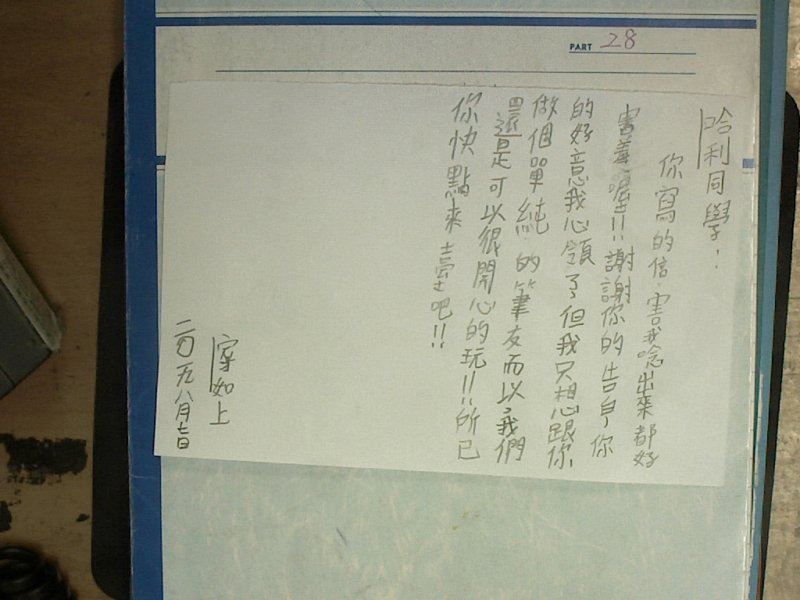 PART 28
哈利同學：
你寫的信，害我唸出來都好
害羞喔!!謝謝你的告白，你
的好意我心領了但我只想跟你
做個單純的筆友而以，我們
還是可以很開心的玩!!所已
你快點來臺吧!!
家如上
二〇一九八月七日